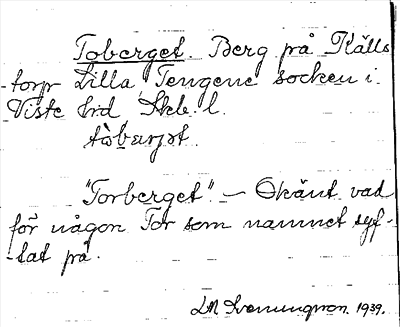 Toberget. Berg på Källs
torp Lilla, Tengene socken i
Viste hd Skb. l.
tòbærjət.
"Torberget" – Okänt vad
för någon Tor som namnet syf-
-tat på.
LM Svenungsson. 1939.